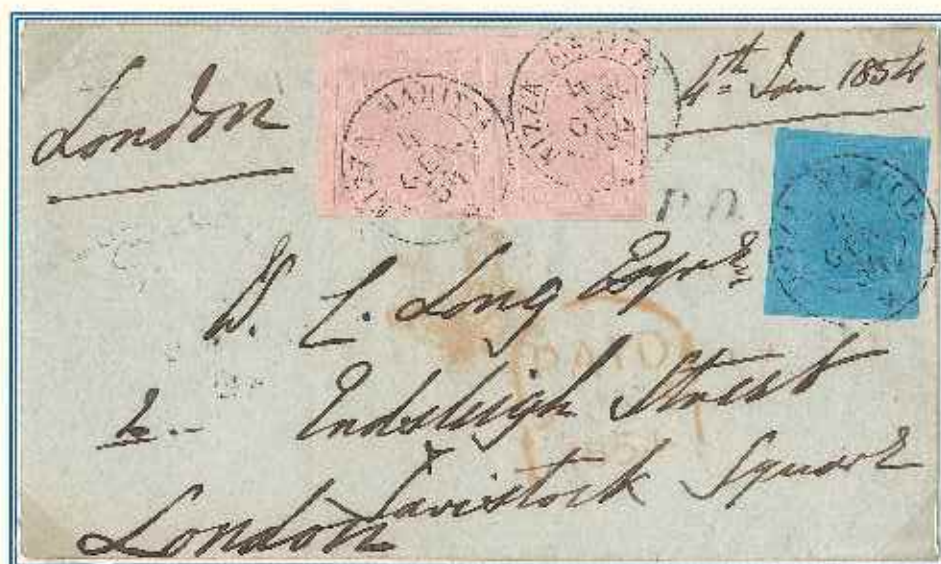 London
4th Jan 1854
NIZZA MARITMA
4
GEN
54
NIZZA MARITMA
4
GEN
54
P.D.
W. L. Long Esqre
2 Endsleigh Street
Tavistock Square
London